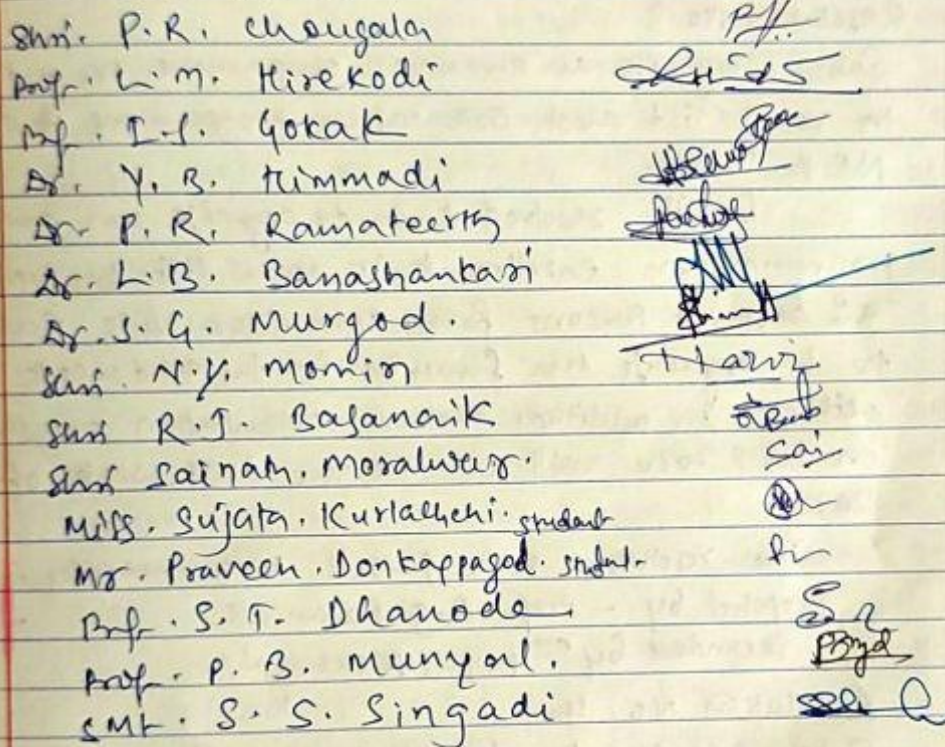 Shri. P.R. Chougala
Prof. L.M. Hirekodi
Prof. I.S. Gokak
Dr. Y.B. Himmadi
Dr. P.R. Ramateerth
Dr. L.B. Banashankari
Dr. S.G. Murgod.
Shri N.Y. Monin
Shri R.J. Basanaik
Shri Sainath. Moralwar. Sai
Miss. Sujata. Kurlachchi. student
Mr. Praveen. Donkappagod. student
Prof. S.T. Dhanode.
Prof. P.B. Munyal.
Smt. S.S. Singadi